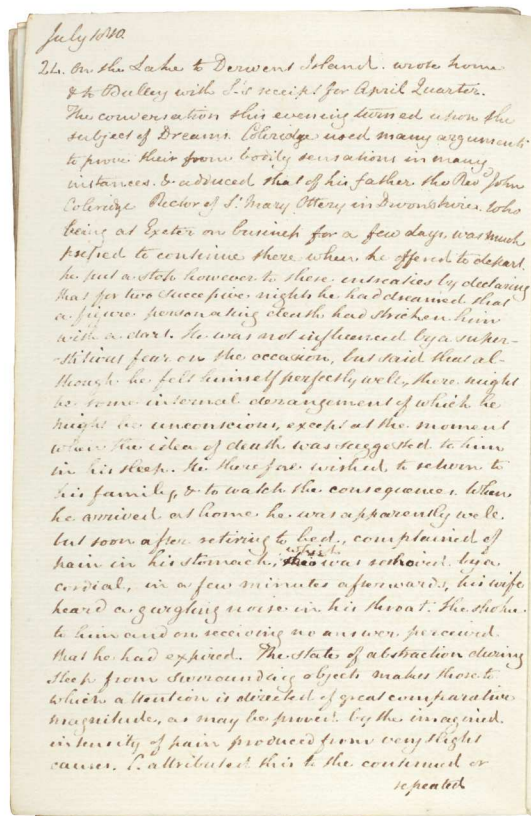 July 1840
24. On the Lake to Derwent Island. wrote home
& to Pulley with S's receipt for April Quarter.
The conversation this evening turned upon the
subject of Dreams. Coleridge used many arguments
to prove their from bodily sensations in many
instances. & adduced that of his father the Rev.d John
Coleridge Rector of St. Mary Ottery in Devonshire. Who
being at Exeter on business for a few days, was much
pressed to continue there when he offered to depart
he put a stop however to these intreaties by declaring
that for two successive nights he had dreamed that
a figure personating death had stricken him
with a dart. He was not influenced by a super-
stitious fear on the occasion, but said that al-
though he felt himself perfectly well, there might
be some internal derangement of which he
might be unconscious, except at the moment
when the idea of death was suggested to him
in his sleep. He therefore wished to return to
his family, & to watch the consequence. When
he arrived at home he was apparently well.
but soon after retiring to bed, complained of
pain in his stomach, which was relieved by a
cordial, in a few minutes afterwards, his wife
heard a gurgling noise in his throat. She spoke
to him and on receiving no answer perceived
that he had expired. The state of abstraction during
sleep from surrounding objects makes those to
which attention is directed of great comparative
magnitude, as may be proved by the imagined
intensity of pain produced from very slight
causes. C. attributed this to the continued or
repeated